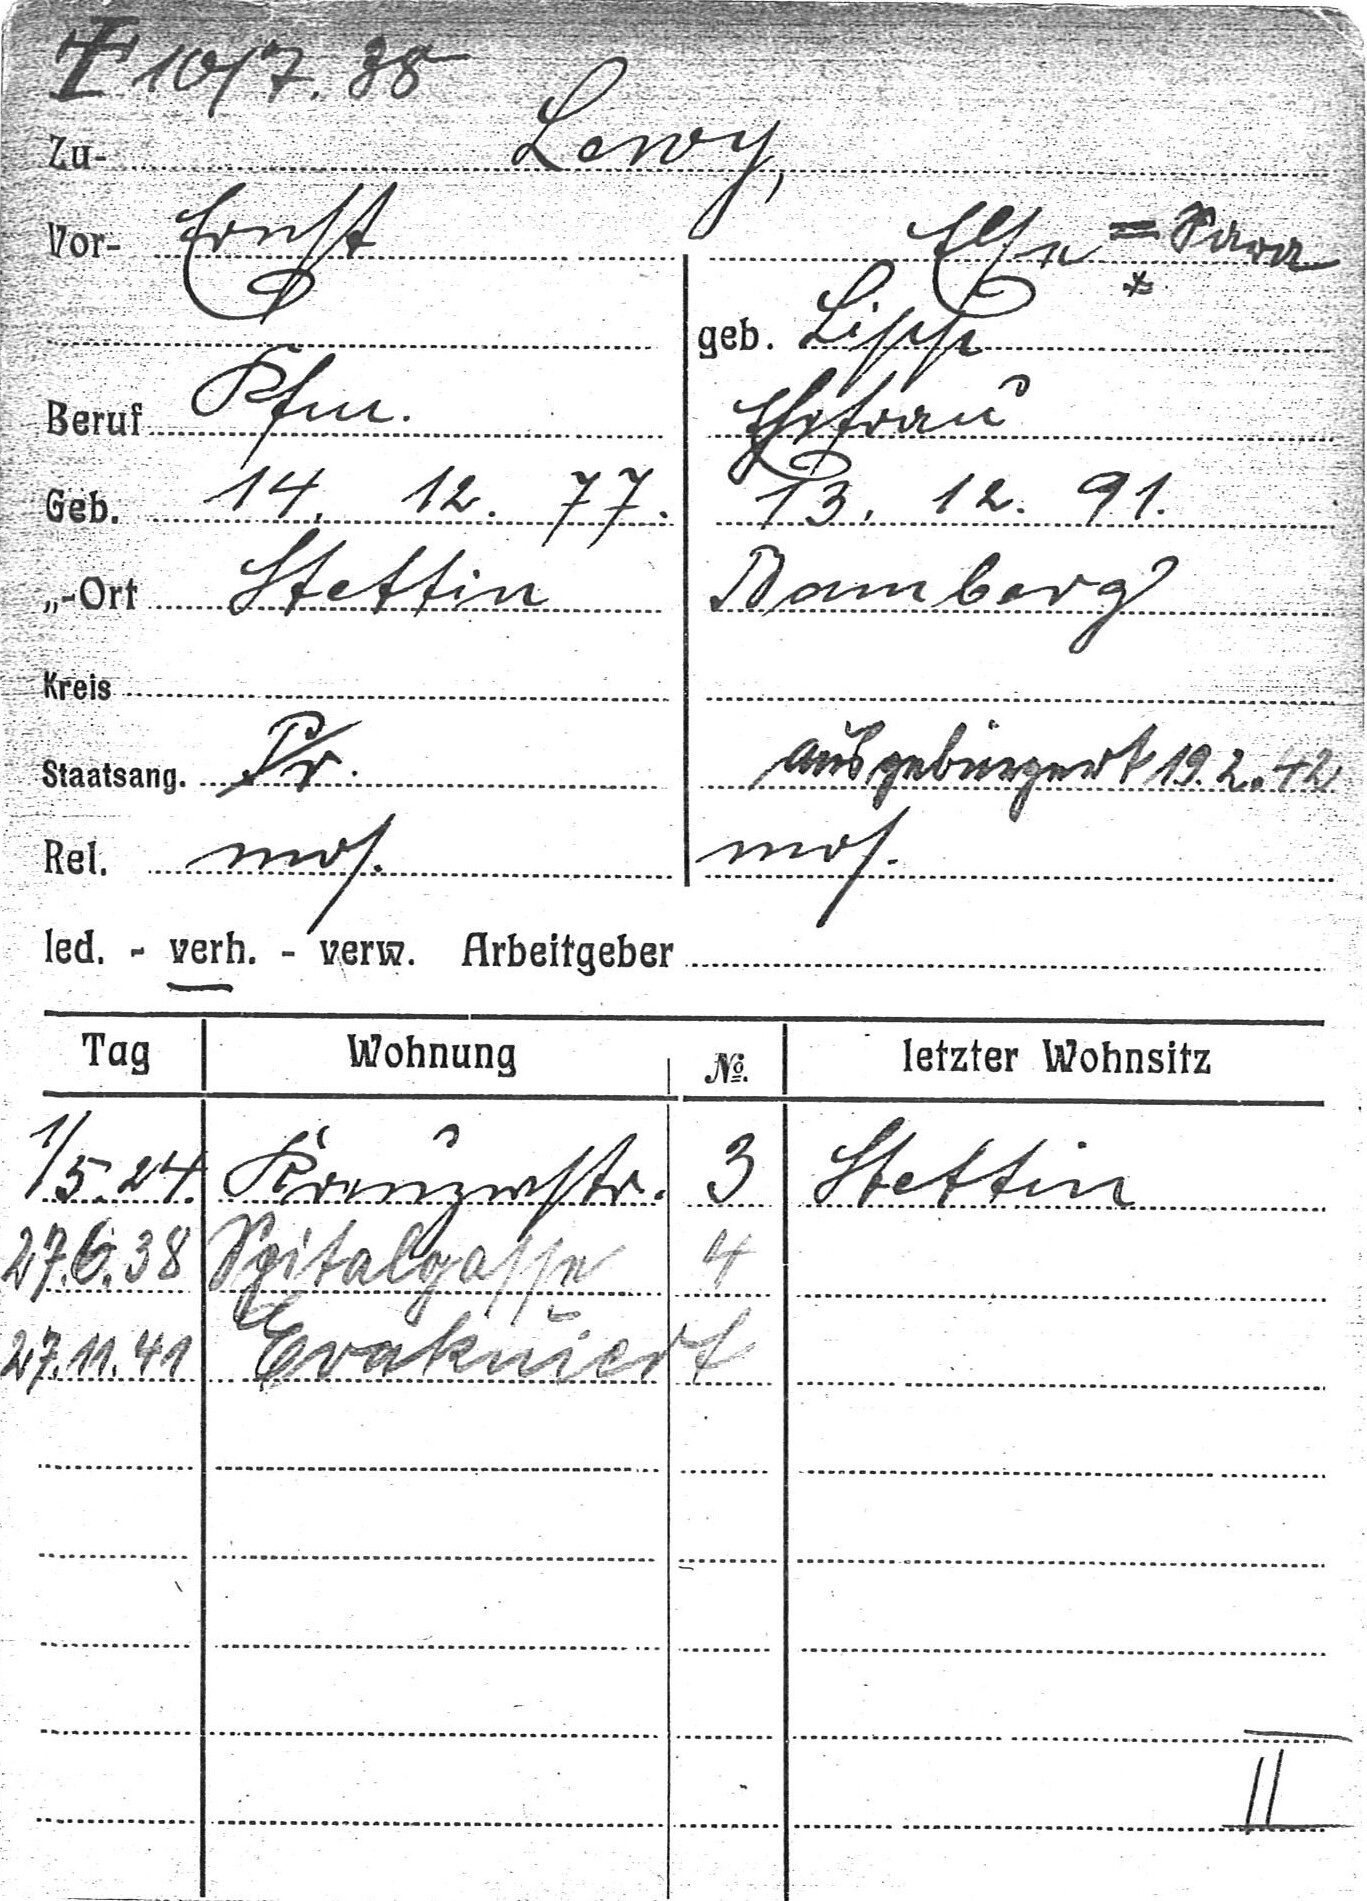 † 10/7. 38
Zu- Lewy,
Vor- Ernst Else = Sara
*
geb. Lippe
Beruf Kfm. Ehefrau
Geb. 14. 12. 77. 13. 12. 91.
„-Ort Stettin Bamberg
Kreis
Staatsang. Pr. ausgebürgert 19.2.42
Rel. mos. mos.
led. - verh. - verw. Arbeitgeber
Tag Wohnung No. letzter Wohnsitz
1/5.24. str. 3 Stettin
27.6.38 Spitalgasse 4
27.11.41 Evakuiert
II